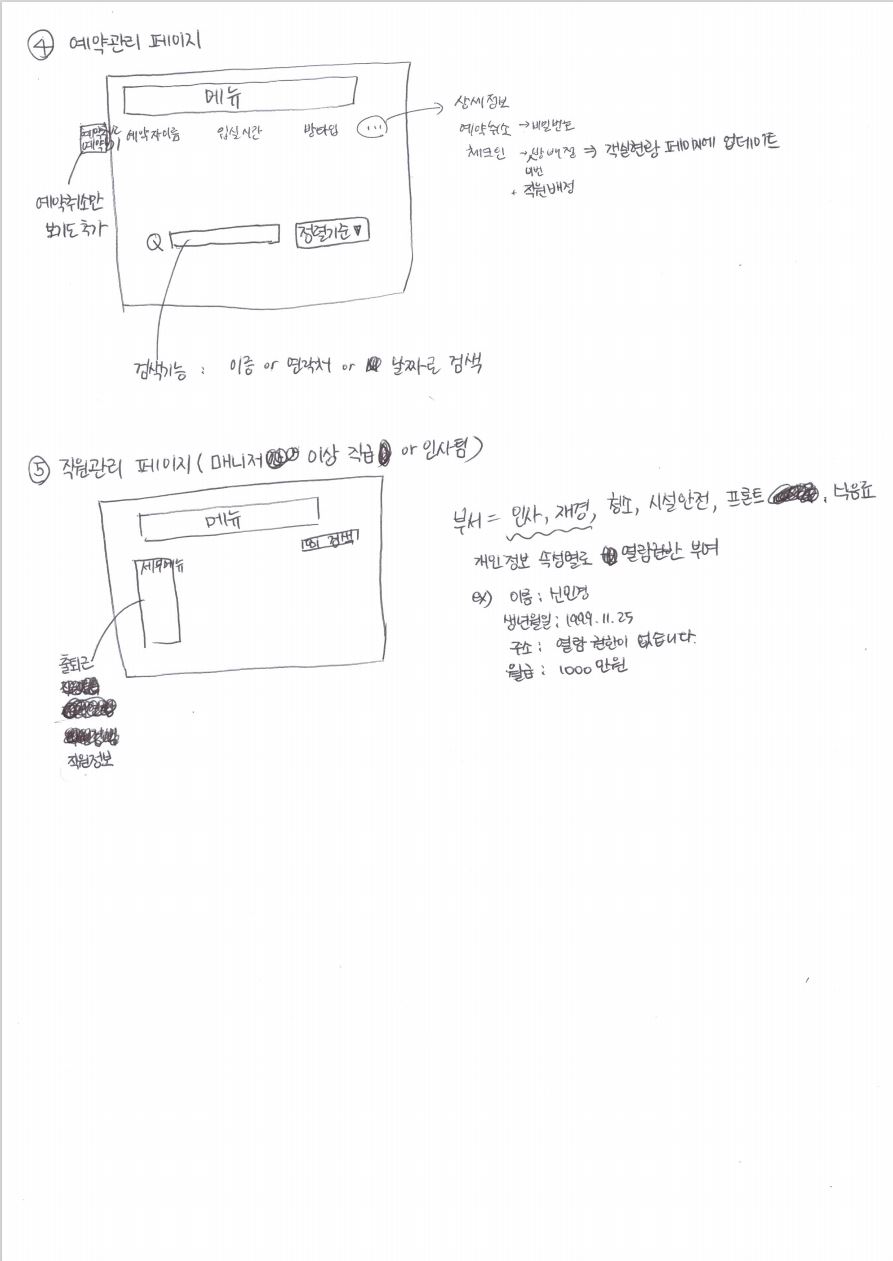 ④ 예약관리 페이지
메뉴
예약자이름 입실시간 방타입 ...
상세정보
예약취소 → 비밀번호
체크인 → 방배정 ⇒ 객실현황 페이지에 업데이트
+ 직원배정
예약취소만
보기도 추가
정렬기준▼
검색기능 : 이름 or 연락처 or 날짜로 검색
⑤ 직원관리 페이지 ( 매니저 이상 직급 or 인사팀 )
메뉴
검색
세부메뉴
출퇴근
직원정보
부서 = 인사, 재경, 청소, 시설안전, 프론트, 식음료
개인정보 속성별로 열람권한 부여
ex) 이름 : 신민경
생년월일 : 1999.11.25
주소 : 열람 권한이 없습니다.
월급 : 1000만원